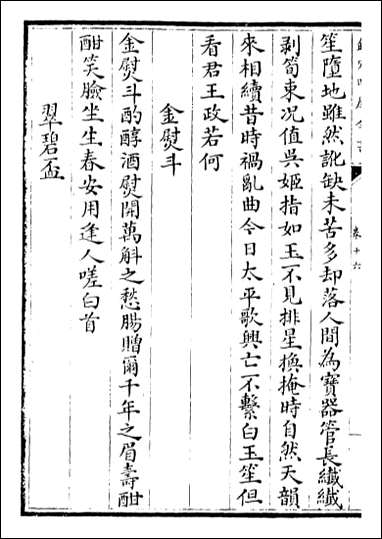 笙墮地雖然訛缺未苦多却落人間為寶器管長纖纖
剥筍束况值吳姬指如玉不見排星換掩時自然天韻
來相續昔時禍亂曲今日太平歌興亡不繫白玉笙但
看君王政若何
金熨斗
金熨斗酌醇酒熨開萬斛之愁腸贈爾千年之眉壽酣
酣笑臉坐生春安用逢人嗟白首
翠碧盃
卷十六